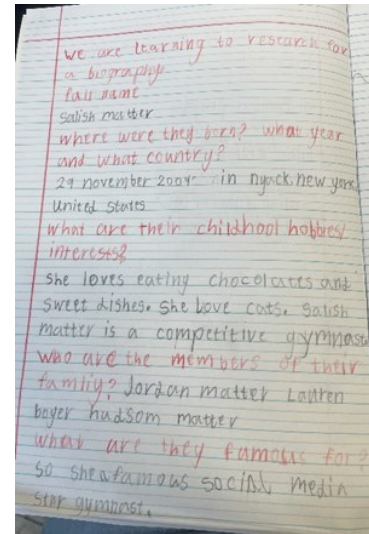 we are learning to research for
a biography
full name
Salish matter
where were they born? what year
and what country?
29 november 2009 in nyack, new york
United States
what are their childhool hobbies/
interests?
she loves eating chocolates and
sweet dishes. she love cats. Salish
matter is a competitive gymnast
who are the members of their
famliy? Jordan matter Lauren
boyer hudsom matter
what are they famous for?
so she a famous social media
star gymnast.